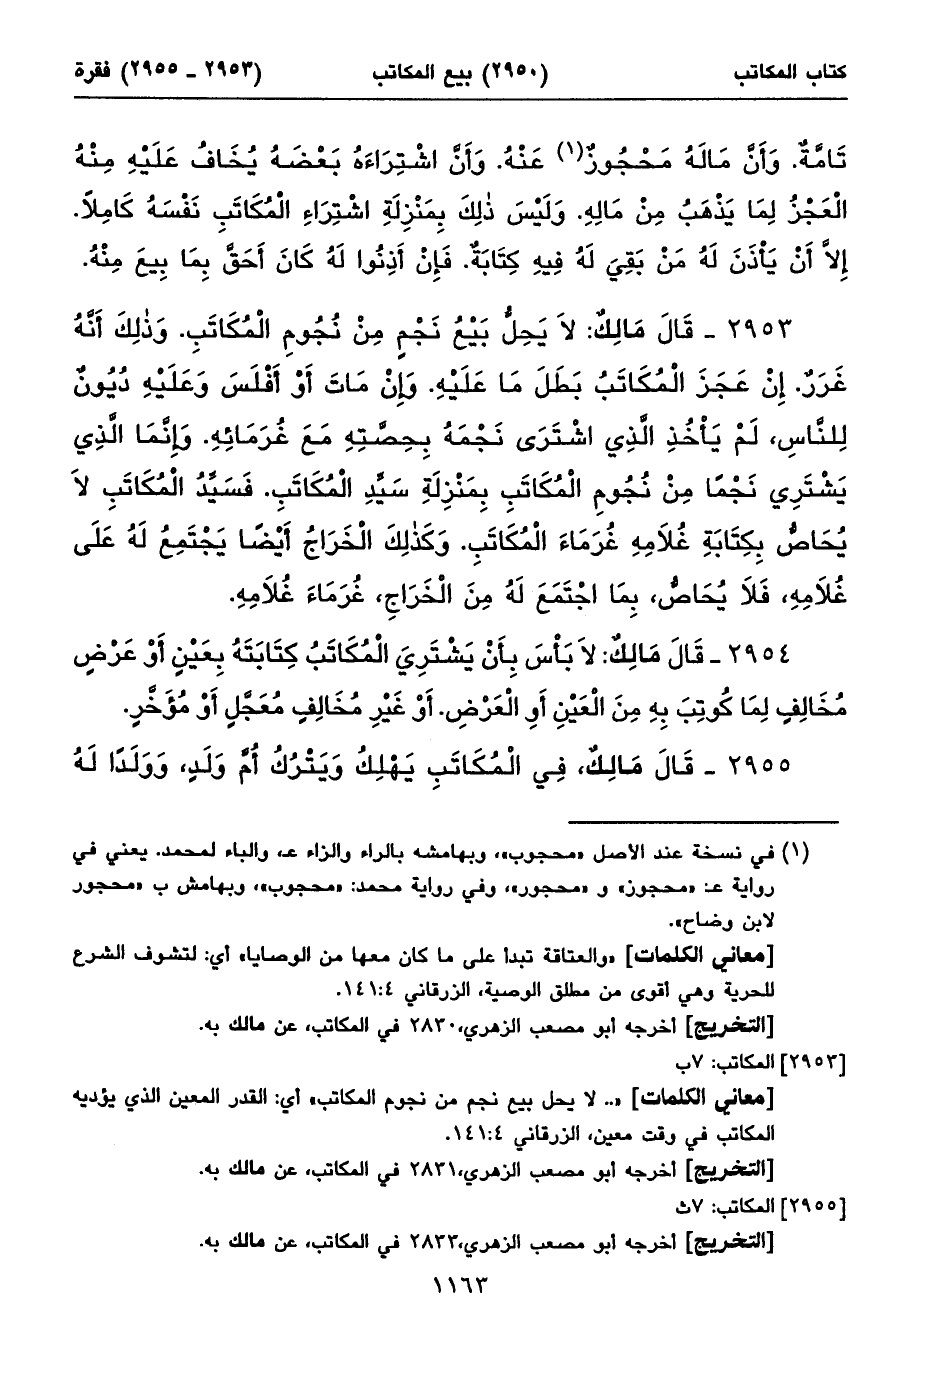 كتاب المكاتب (٢٩٥٠) بيع المكاتب (٢٩٥٣ ـ ٢٩٥٥) فقرة
تَامَّةٌ. وَأَنَّ مَالَهُ مَحْجُوزٌ(١) عَنْهُ. وَأَنَّ اشْتِرَاءَهُ بَعْضَهُ يُخَافُ عَلَيْهِ مِنْهُ
الْعَجْزُ لِمَا يَذْهَبُ مِنْ مَالِهِ. وَلَيْسَ ذٰلِكَ بِمَنْزِلَةِ اشْتِرَاءِ الْمُكَاتَبِ نَفْسَهُ كَامِلاً.
إِلاَّ أَنْ يَأْذَنَ لَهُ مَنْ بَقِيَ لَهُ فِيهِ كِتَابَةٌ. فَإِنْ أَذِنُوا لَهُ كَانَ أَحَقَّ بِمَا بِيعَ مِنْهُ.
٢٩٥٣ ـ قَالَ مَالِكٌ: لاَ يَحِلُّ بَيْعُ نَجْمٍ مِنْ نُجُومِ الْمُكَاتَبِ. وَذٰلِكَ أَنَّهُ
غَرَرٌ. إِنْ عَجَزَ الْمُكَاتَبُ بَطَلَ مَا عَلَيْهِ. وَإِنْ مَاتَ أَوْ أَفْلَسَ وَعَلَيْهِ دُيُونٌ
لِلنَّاسِ، لَمْ يَأْخُذِ الَّذِي اشْتَرَى نَجْمَهُ بِحِصَّتِهِ مَعَ غُرَمَائِهِ. وَإِنَّمَا الَّذِي
يَشْتَرِي نَجْمًا مِنْ نُجُومِ الْمُكَاتَبِ بِمَنْزِلَةِ سَيِّدِ الْمُكَاتَبِ. فَسَيِّدُ الْمُكَاتَبِ لاَ
يُحَاصُّ بِكِتَابَةِ غُلاَمِهِ غُرَمَاءَ الْمُكَاتَبِ. وَكَذٰلِكَ الْخَرَاجُ أَيْضًا يَجْتَمِعُ لَهُ عَلَى
غُلاَمِهِ، فَلاَ يُحَاصُّ، بِمَا اجْتَمَعَ لَهُ مِنَ الْخَرَاجِ، غُرَمَاءَ غُلاَمِهِ.
٢٩٥٤ ـ قَالَ مَالِكٌ: لاَ بَأْسَ بِأَنْ يَشْتَرِيَ الْمُكَاتَبُ كِتَابَتَهُ بِعَيْنٍ أَوْ عَرْضٍ
مُخَالِفٍ لِمَا كُوتِبَ بِهِ مِنَ الْعَيْنِ أَوِ الْعَرْضِ. أَوْ غَيْرِ مُخَالِفٍ مُعَجَّلٍ أَوْ مُؤَخَّرٍ.
٢٩٥٥ ـ قَالَ مَالِكٌ، فِي الْمُكَاتَبِ يَهْلِكُ وَيَتْرُكُ أُمَّ وَلَدٍ، وَوَلَدًا لَهُ
(١) في نسخة عند الاصل «محجوب»، وبهامشه بالراء والزاء عـ، والباء لمحمد. يعني في
رواية عـ: «محجوز» و «محجور»، وفي رواية محمد: «محجوب»، وبهامش ب «محجور
لابن وضاح».
[معاني الكلمات] «والعتاقة تبدا على ما كان معها من الوصايا» أي: لتشوف الشرع
للحرية وهي أقوى من مطلق الوصية، الزرقاني ١٤١:٤.
[التخريج] أخرجه أبو مصعب الزهري، ٢٨٣٠ في المكاتب، عن مالك به.
[٢٩٥٣] المكاتب: ٧ب
[معاني الكلمات] «.. لا يحل بيع نجم من نجوم المكاتب» أي: القدر المعين الذي يؤديه
المكاتب في وقت معين، الزرقاني ١٤١:٤.
[التخريج] أخرجه أبو مصعب الزهري، ٢٨٣١ في المكاتب، عن مالك به.
[٢٩٥٥] المكاتب: ٧ث
[التخريج] أخرجه أبو مصعب الزهري، ٢٨٣٣ في المكاتب، عن مالك به.
١١٦٣